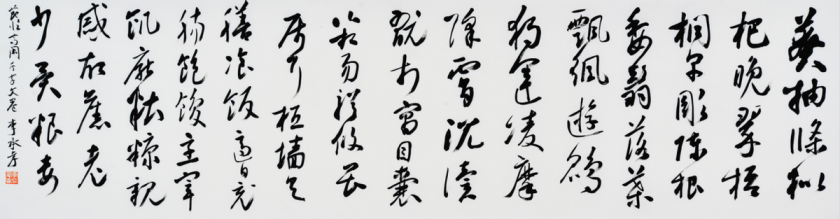 莽抽條枇
杷晚翠梧
桐早彫陳根
委翳落葉
飄颻遊鵾
獨運凌摩
絳霄耽讀
翫市寓目囊
箱易輶攸畏
屬耳垣墻具
膳飡飯適口充
腸飽飫烹宰
飢厭糟糠親
戚故舊老
少異糧妾
千字文 李永